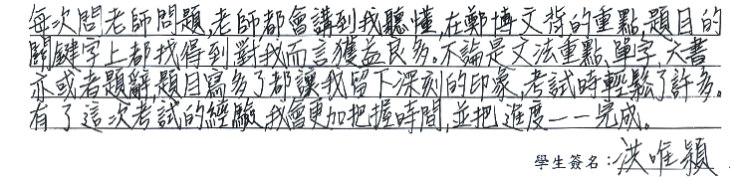 每次問老師問題,老師都會講到我聽懂,在鄭博文背的重點,題目的
關鍵字上都找得到對我而言獲益良多。不論是文法重點、單字、六書
亦或者題辭,題目寫多了都讓我留下深刻的印象,考試時輕鬆了許多。
有了這次考試的經驗,我會更加把握時間,並把進度一一完成。
學生簽名:洪唯穎